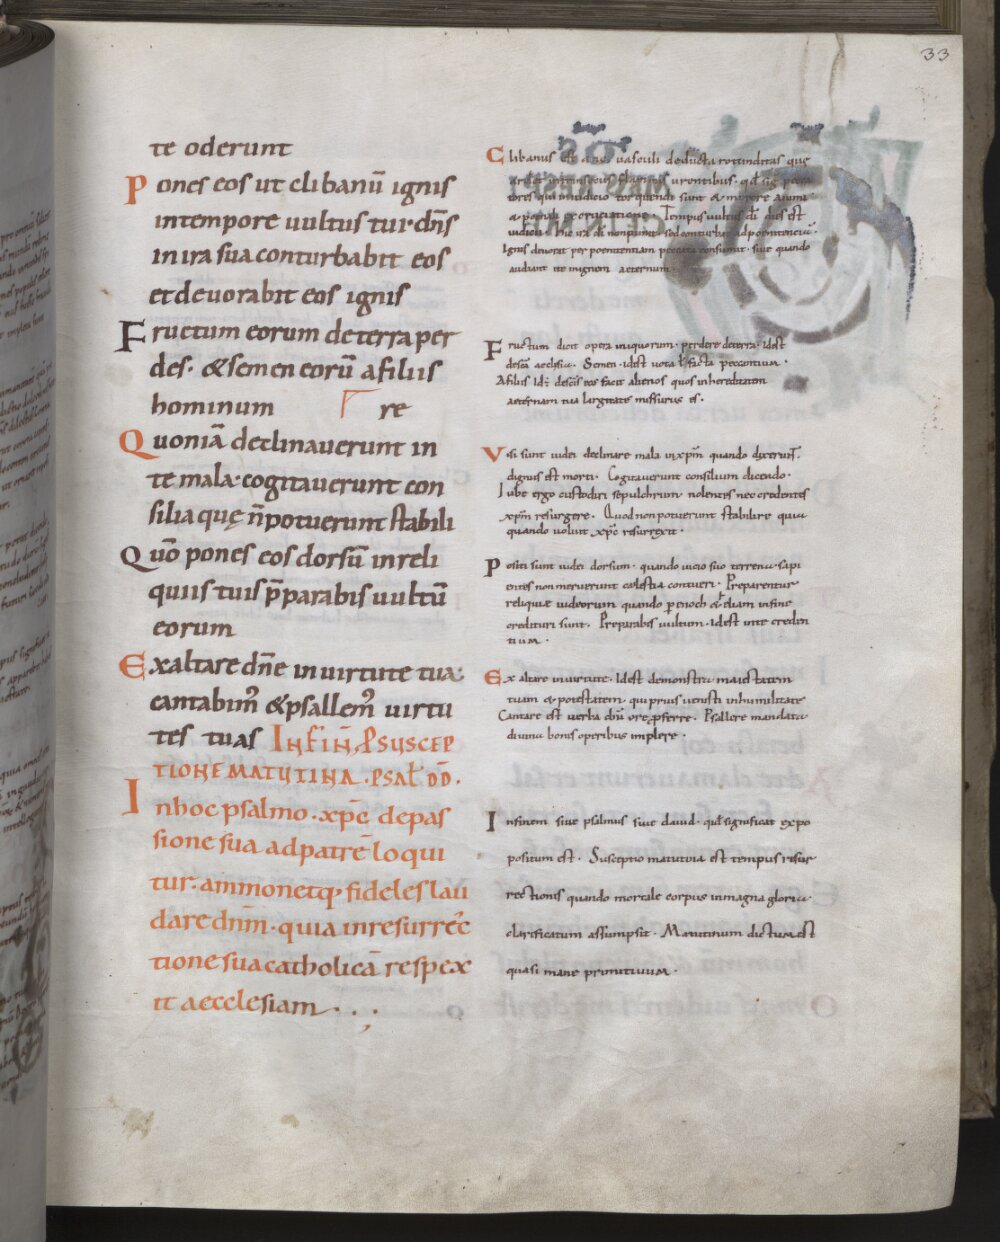 33
te oderunt
Pones eos ut clibanū ignis
in tempore uultus tui· dn̄s
in ira sua conturbabit eos
et deuorabit eos ignis
Fructum eorum de terra per
des· & semen eorū a filiis
hominum re
Quoniā declinauerunt in
te mala· cogitauerunt con
silia quę n̄ potuerunt stabili
Quō pones eos dorsū in reli
quiis tuis p̄parabis uultū
eorum
Exaltare dn̄e in uirtute tua·
cantabim̄ & psallem̄ uirtu
tes tuas IN FIN̄. P SUSCEP
TIONE MATUTINA. PSAL DD̄.
In hoc psalmo· xp̄c de pas
sione sua ad patrē loqui
tur· ammonetq; fideles lau
dare dnm̄· quia in resurrec̄
tione sua catholicā respex
it aecclesiam
Clibanus est uasculi deducta rotunditas que
urentibus·
tores qui in iudicio torquendi sunt &
& Tempus uultus
Ignis deuorat per poenitentiam peccata consumit· siue quando
audiant ite in ignem aeternum
Fructum dicit opera iniquorum· perdere de terra· idest
aecclesia· Semen· idest uota l facta peccantium·
A filiis Id; eos facit alienos quos in hereditatem
aeternam sua largitate missurus es·
Visi sunt iudei declinare mala in xp̄m quando dixerunt·
dignus est morti· Cogitauerunt consilium dicendo·
Iube ergo custodiri sepulchrum· nolentes nec credentes
xp̄m resurgere· Quod non potuerunt stabilire quia
quando uoluit xp̄c resurrexit·
Positi sunt iudei dorsum· quando uicio suo terrena sapi
entes non meruerunt caelestia contueri· Preparentur
reliquiae iudeorum quando p enoch & eliam in fine
credituri sunt· Preparabis uultum· idest in te creden
tium·
Exaltare in uirtute· Idest demonstra maiestatem
tuam & potestatem· qui prius uenisti in humilitate
Cantare est uerba dn̄i ore p̄ferre· Psallere mandata
diuina bonis operibus implere·
In finem siue psalmus siue dauid· qd significat expo
positum est· Susceptio matutina est tempus resur
rectionis quando mortale corpus in magna gloria
clarificatum assumpsit· Matutinum dictum est
quasi mane primitiuum·